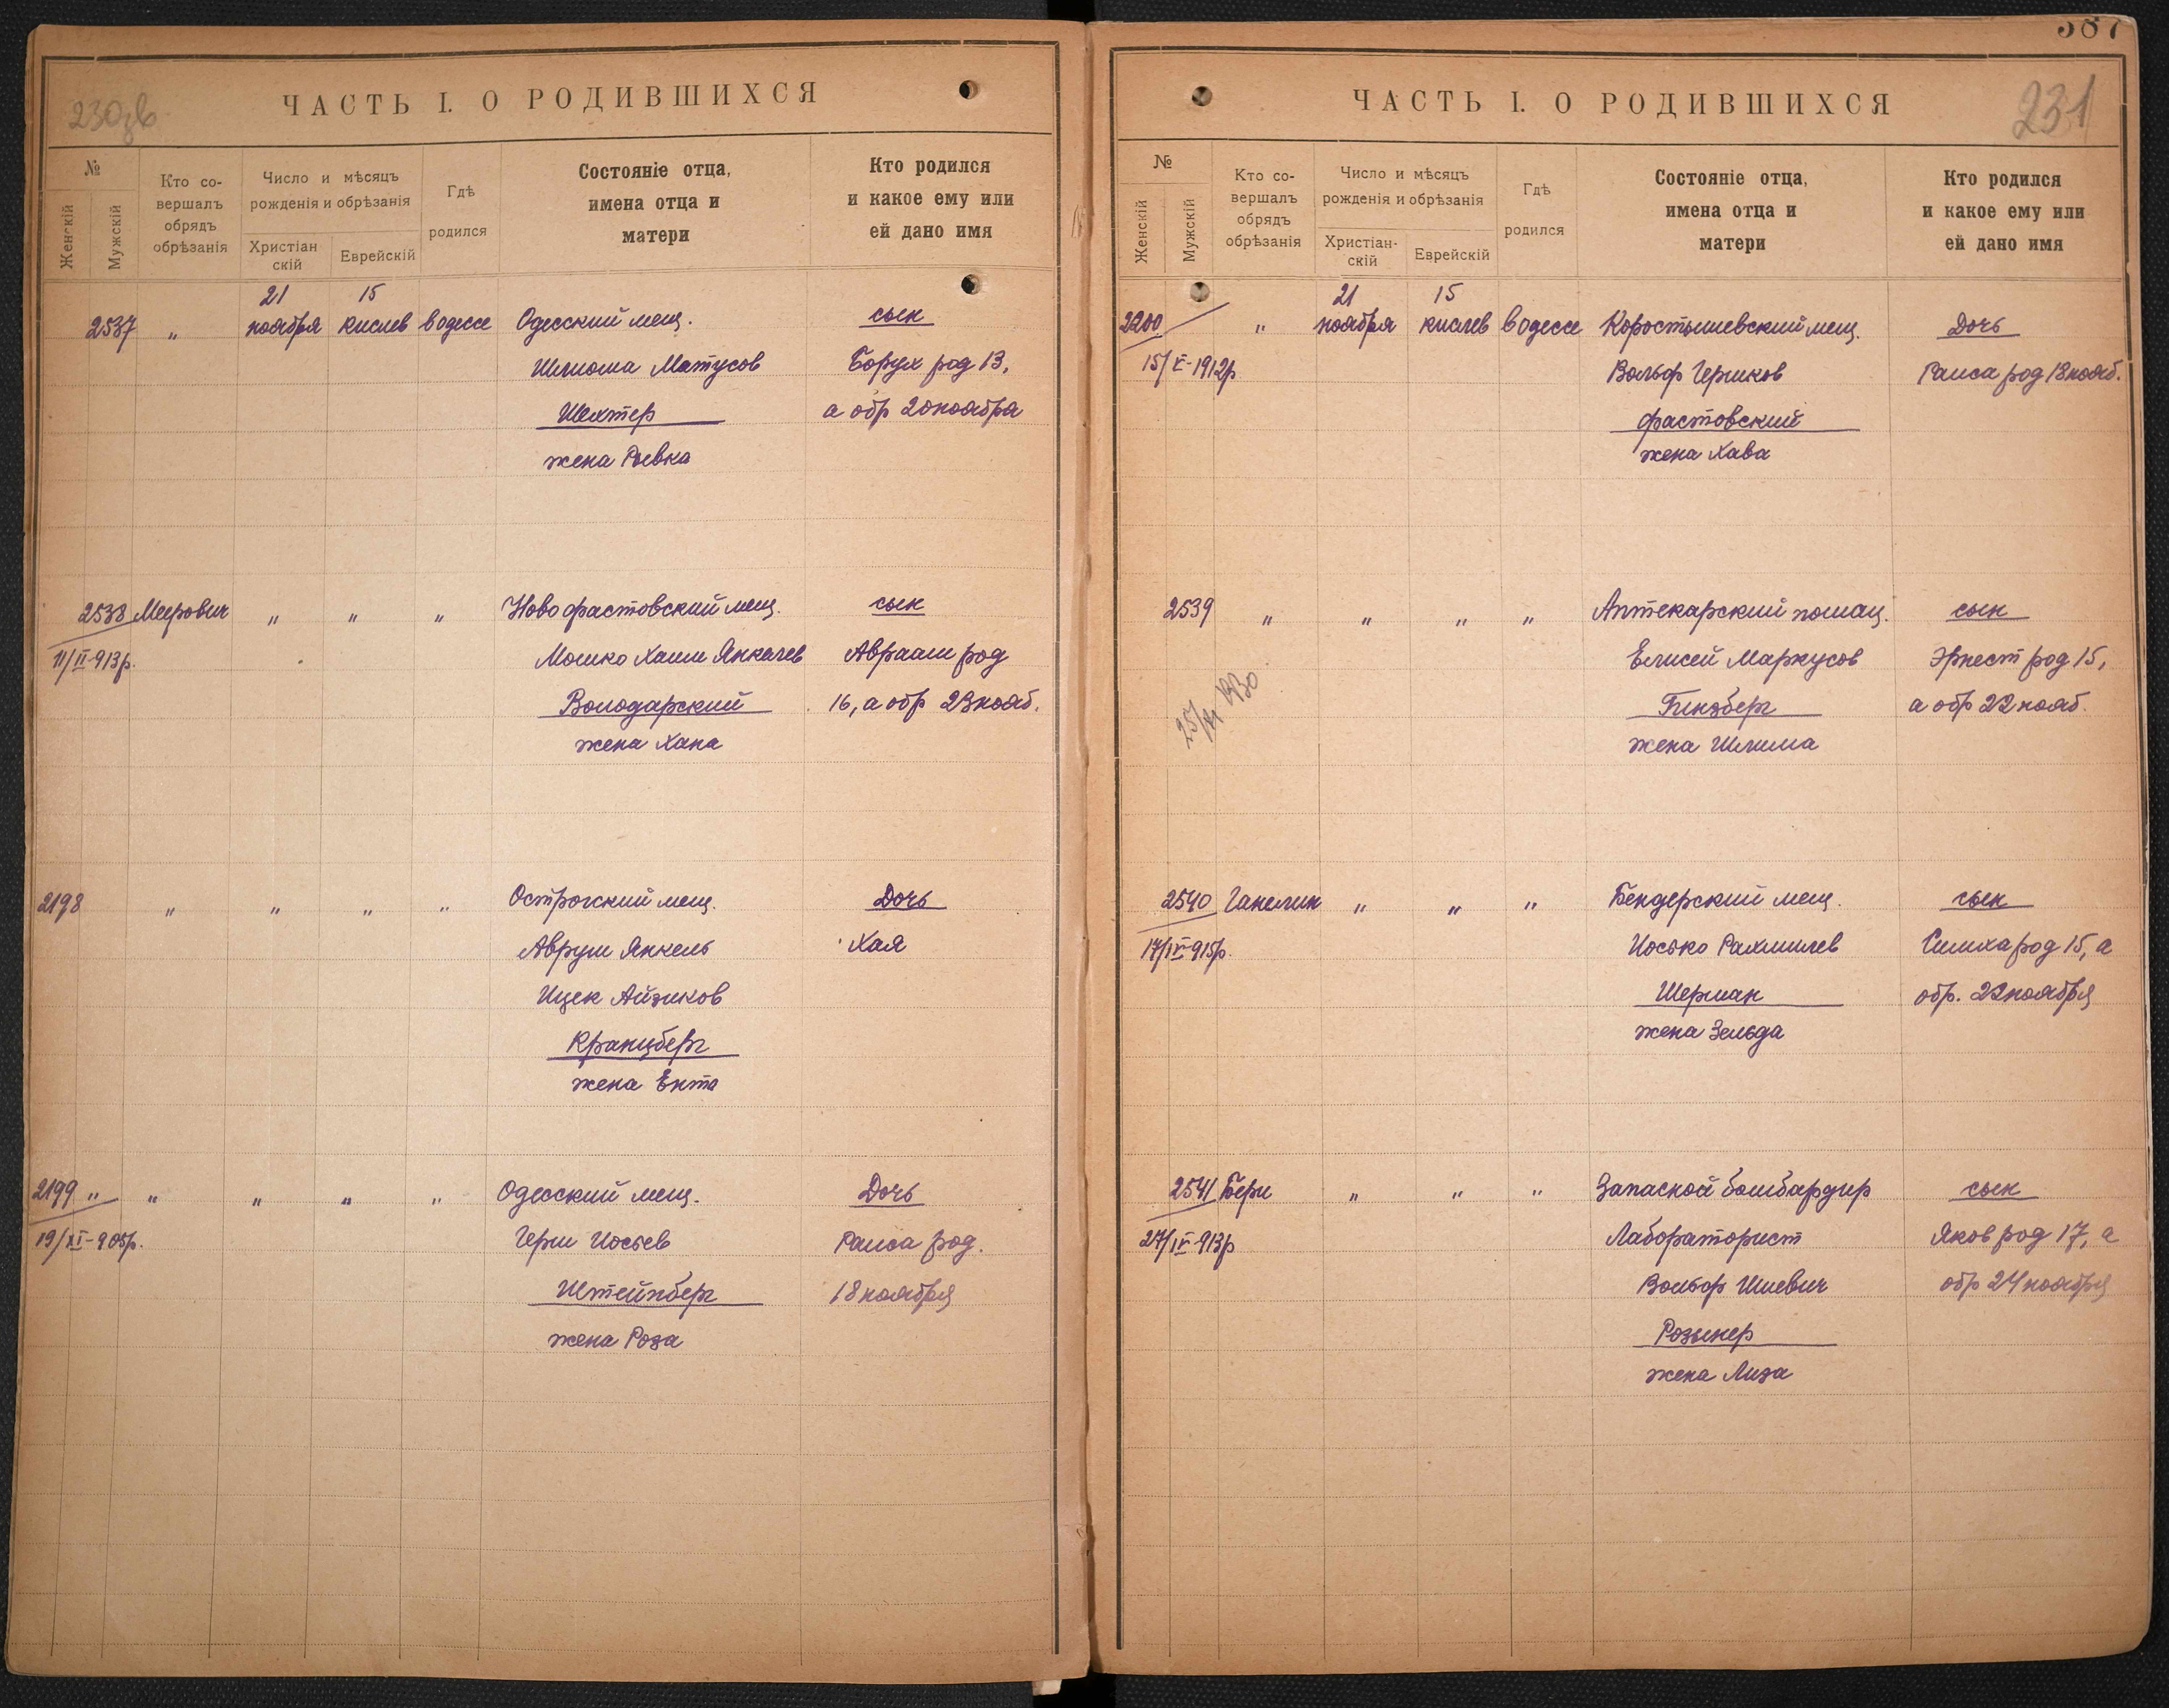 230зв
ЧАСТЬ I. О РОДИВШИХСЯ
№
Женскій
Мужскій
Кто со-
вершалъ
обрядъ
обрѣзанія
Число и мѣсяцъ
рожденія и обрѣзанія
Христіан
скій
Еврейскій
Гдѣ
родился
Состояніе отца,
имена отца и
матери
Кто родился
и какое ему или
ей дано имя
21 15
2537 " ноября кислев в одессе Одесский мещ. сын
Шлиома Матусов Борух род 13,
Шехтер а обр 20 ноября
жена Ривка
2538 Меерович " " " Новофастовский мещ. сын
11/II-913р. Мошко Хаим Янкелев Авраам род
Володарский 16, а обр 23 нояб.
жена Хана
2198 " " " " Острогский мещ. Дочь
Аврум Янкель Хая
Ицек Айзиков
Кранцберг
жена Ента
2199 " " " " " Одесский мещ. Дочь
19/XI-905р. Герш Иосьев Раиса род.
Штейнберг 18 ноября
жена Роза
387
231
ЧАСТЬ I. О РОДИВШИХСЯ
№
Женскій
Мужскій
Кто со-
вершалъ
обрядъ
обрѣзанія
Число и мѣсяцъ
рожденія и обрѣзанія
Христіан-
скій
Еврейскій
Гдѣ
родился
Состояніе отца,
имена отца и
матери
Кто родился
и какое ему или
ей дано имя
21 15
2200 " ноября кислев в одессе Коростышевский мещ. Дочь
15/X-1912р Вольф Гершков Раиса род 18 нояб.
Фастовский
жена Хава
2539 " " " " Аптекарский помощ. сын
Елисей Маркусов Эрнест род 15,
Гинзберг а обр 22 нояб.
жена Шлима
2540 Ганелин " " " Бендерский мещ. сын
17/IV-915р. Иосько Рахмилев Симха род 15, а
Шерман обр. 22 ноября
жена Зельда
2541 Берш " " " Запасной бомбардир сын
27/IV-913р Лабораторист Яков род 17, а
Вольф Шлевич обр 24 ноября
Розынер
жена Лиза